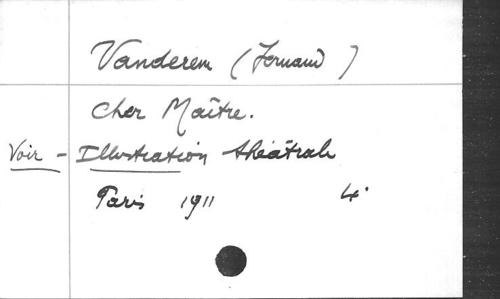 Vanderem (Fernand)
Cher Maître.
Voir - Illustration théâtrale
Paris 1911 4°